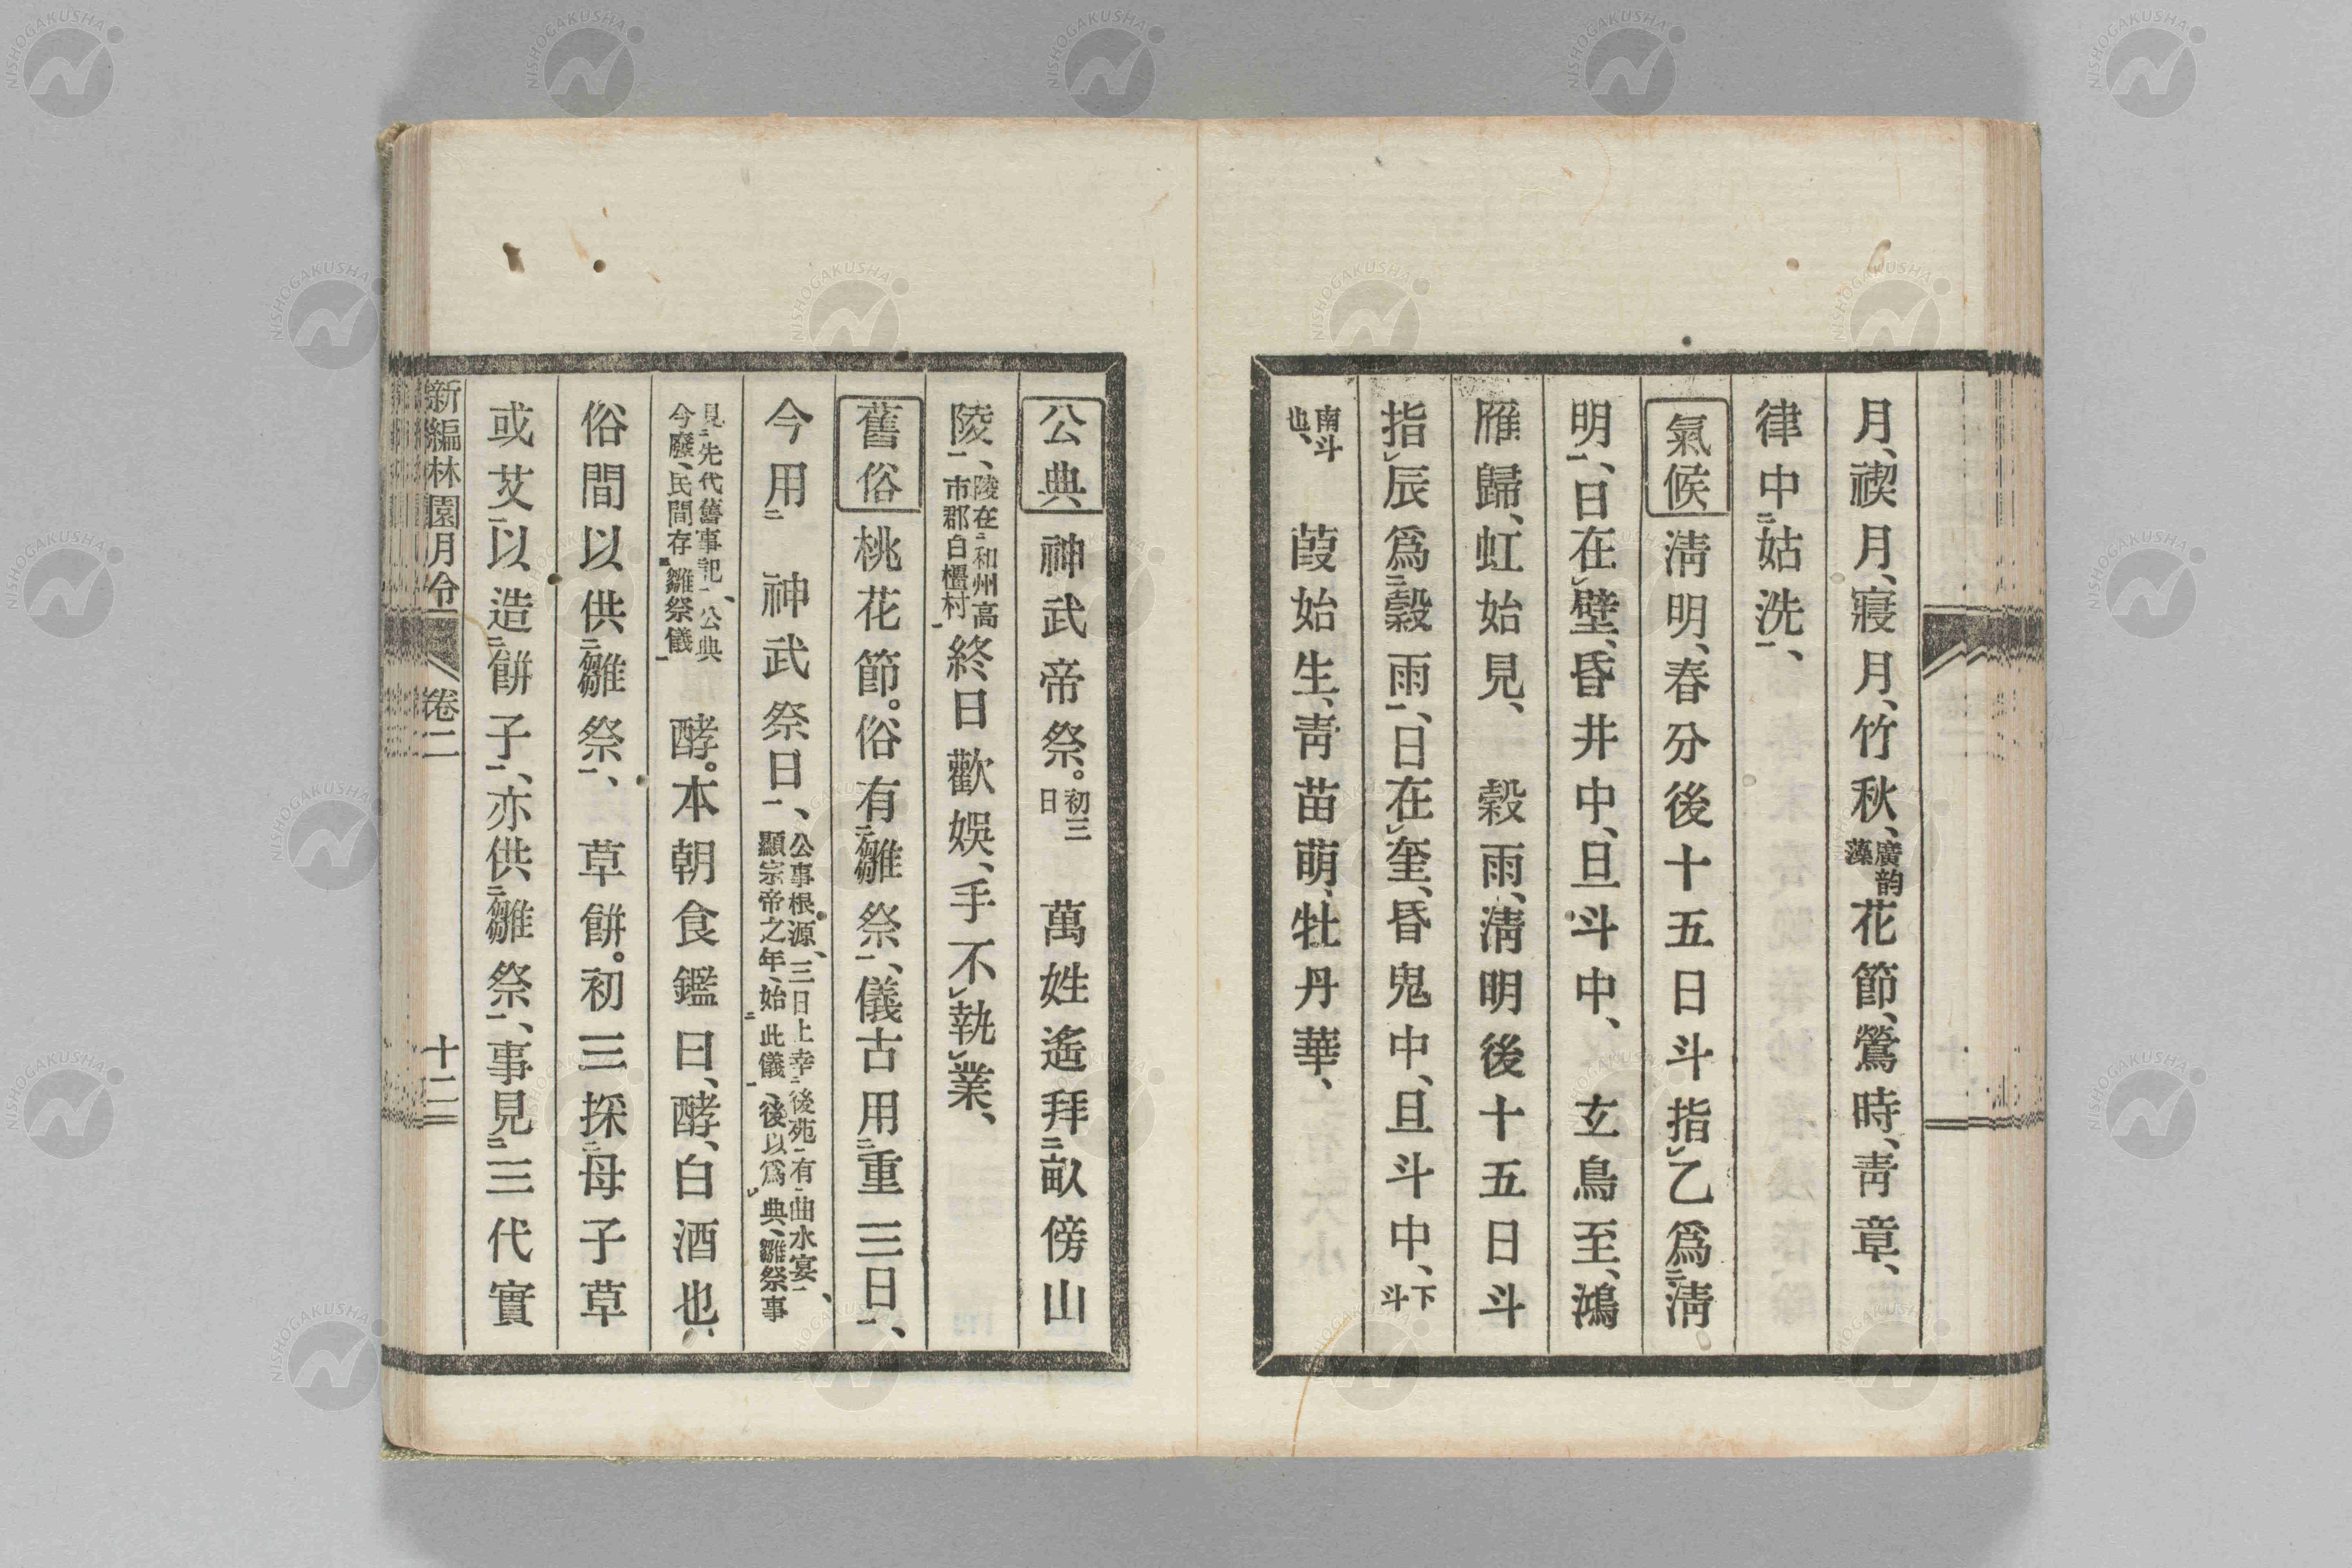 月、禊月、寢月、竹秋、廣韵藻花節、鶯時、靑章、
律中二姑洗一、
氣候 淸明、春分後十五日斗指レ乙爲二淸
明一、日在レ壁、昏井中、旦斗中、 玄鳥至、鴻
雁歸、虹始見、 穀雨、淸明後十五日斗
指レ辰爲二穀雨一、日在レ奎、昏鬼中、旦斗中、下斗
南斗也、 葭始生、靑苗萌、牡丹華、
公典 神武帝祭。初三日 萬姓遙拜二畝傍山
陵一、陵在二和州高市郡白橿村一終日歡娛、手不レ執レ業、
舊俗 桃花節。俗有二雛祭一、儀古用二重三日一、
今用二 神武祭日一、公事根源、三日上幸二後苑一有二曲水宴一、顯宗帝之年、始二此儀一、後以爲レ典、雛祭事
見二先代舊事記一、公典今廢、民間存二雛祭儀一 酵。本朝食鑑曰、酵、白酒也、
俗間以供二雛祭一、 草餠。初三採二母子草
或艾一以造二餠子一、亦供二雛祭一、事見二三代實
新編林園月令 卷二 十二
NISHOGAKUSHA